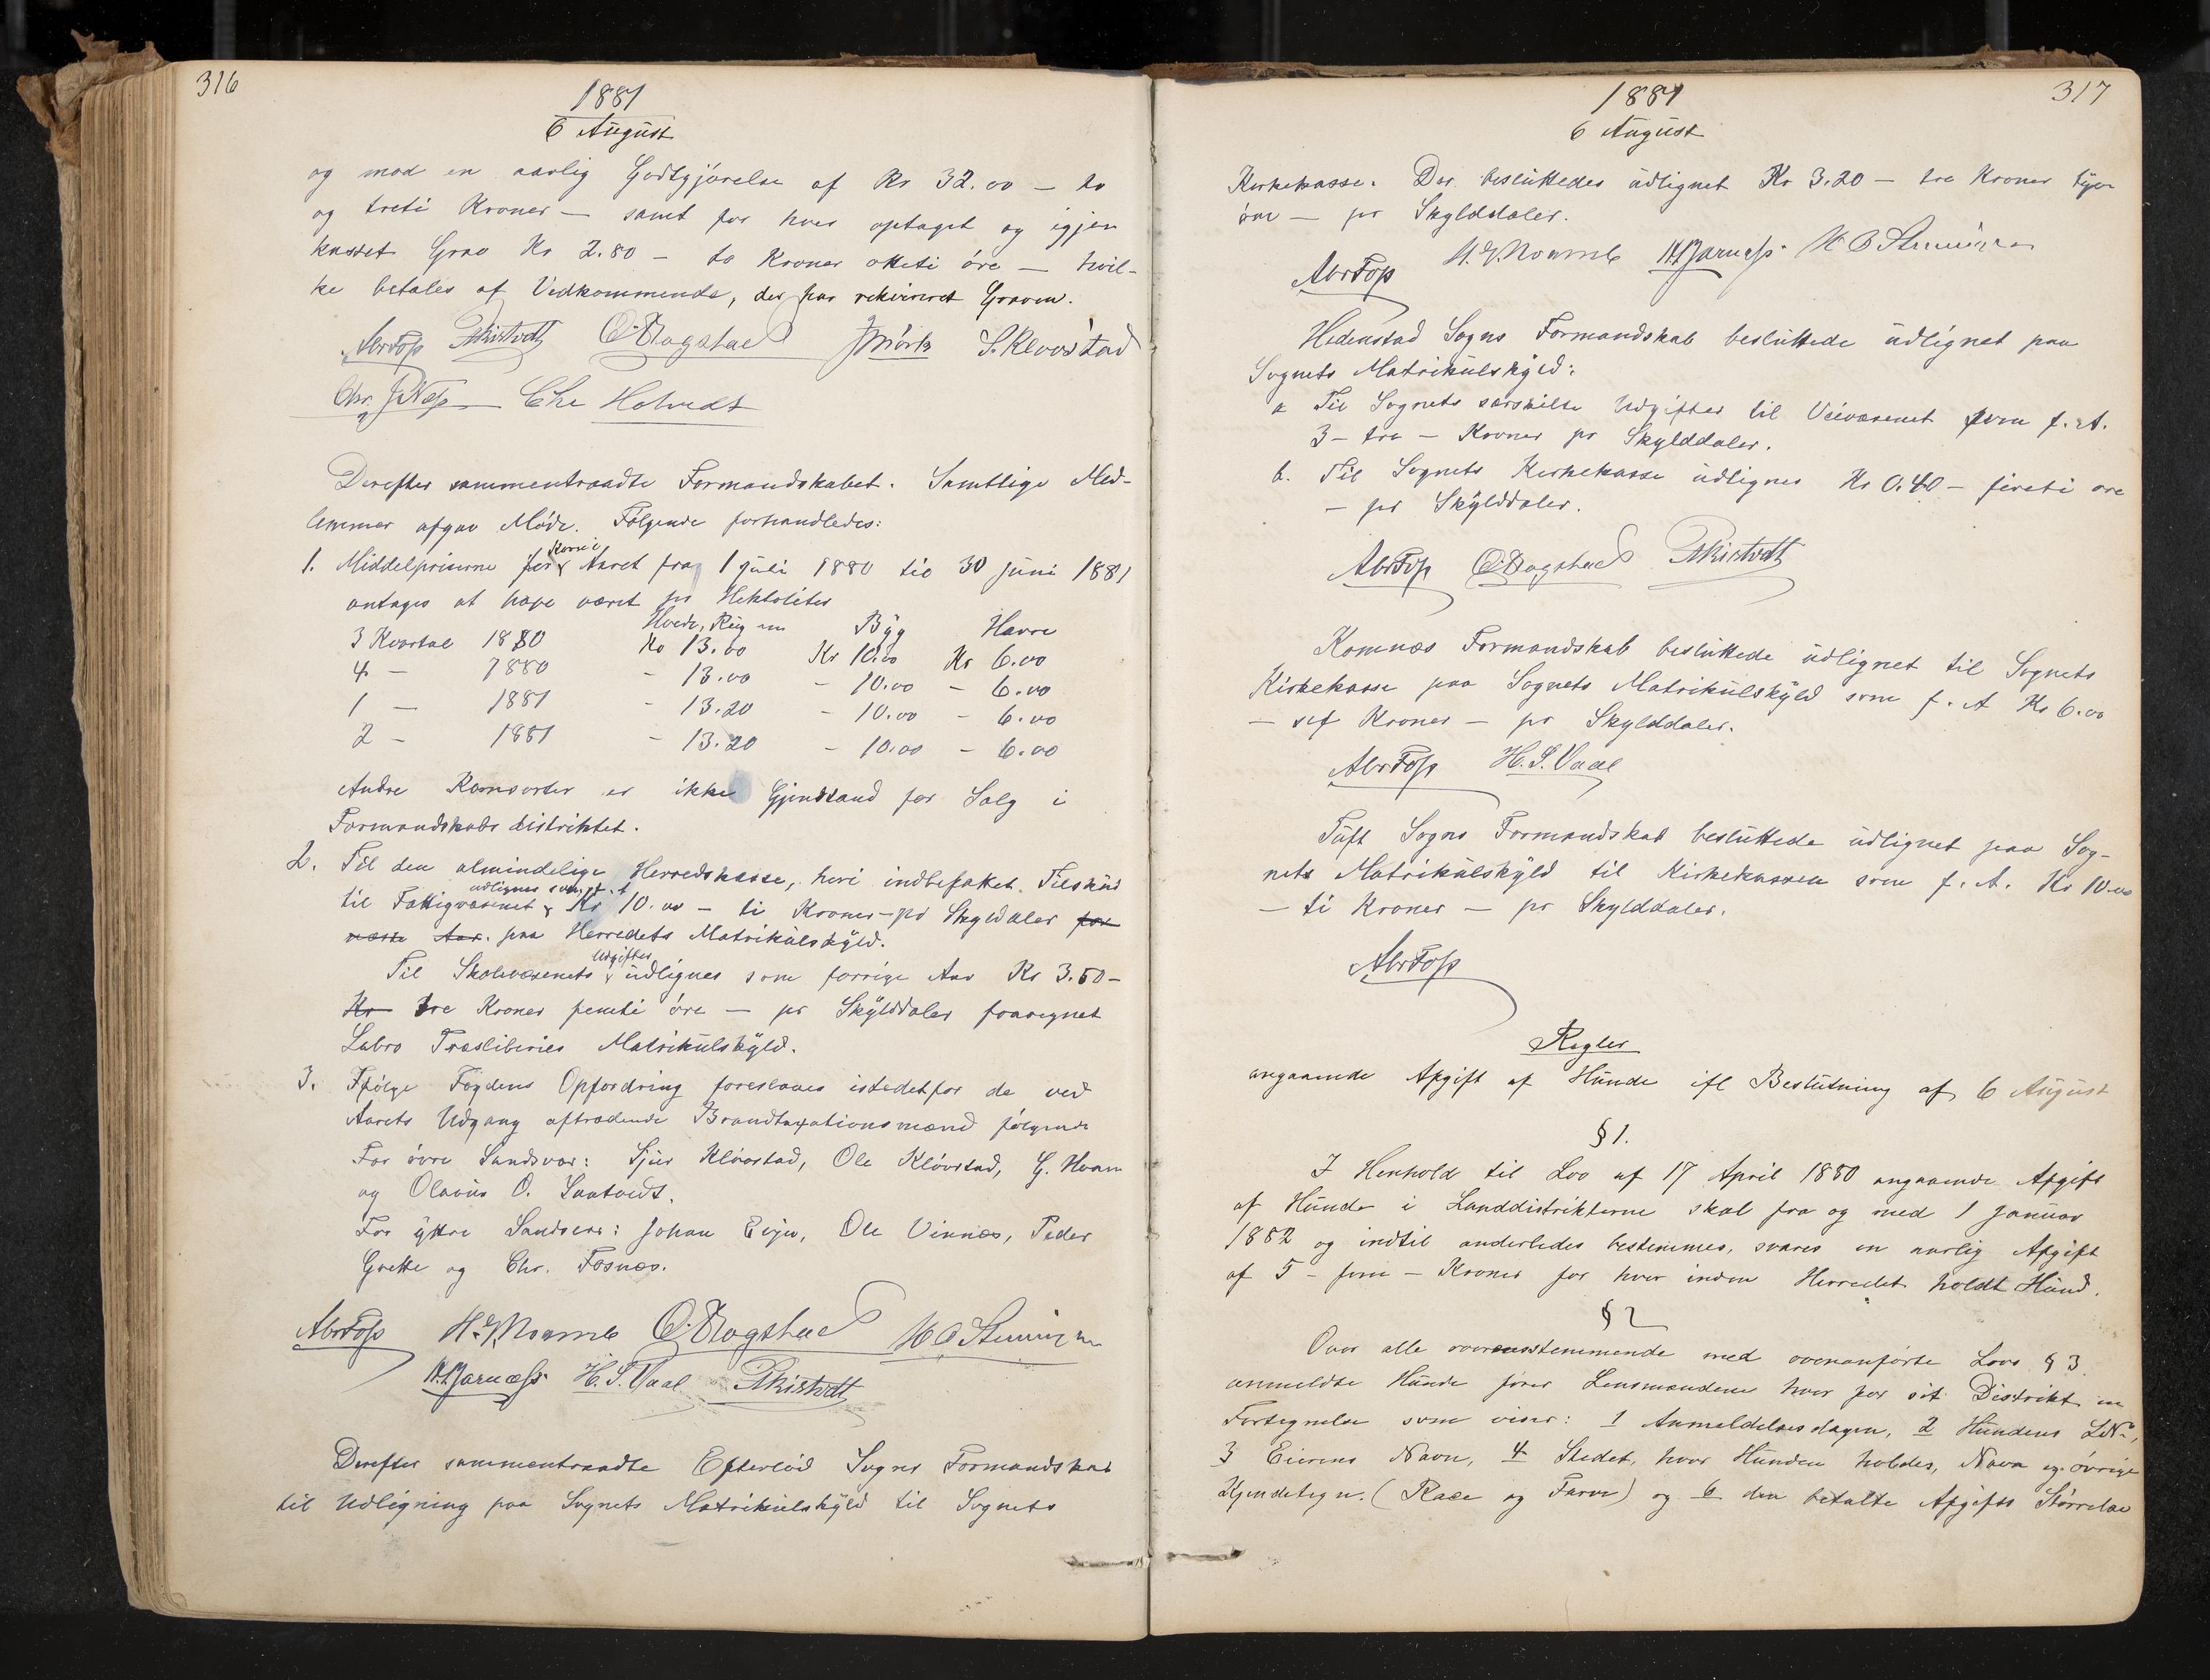 316
1881
6 August
og mod en aarlig Godtgjörelse af Kr 32.00 — to
og treti Kroner — samt for hver optaget og igjen
kastet Grav Kr 2.80 — to Kroner otteti öre — hvil-
ke betales af Vedkommende, der har rekvireret Graven.
AbrFoss PSkistvedt O. Skogstad S. Kloustad
Chr. J. Næss Chr Holtvedt
Derefter sammentraadte Formandskabet. Samtlige Med-
lemmer afgav Möde. Fölgende forhandledes:
1. Middelpriserne for Korn i Aaret fra 1 juli 1880 til 30 juni 1881
antages at have været pr Hektoliter
Hvede, Rug Byg Havre
3 Kvartal 1880 Kr 13.00 Kr 10.00 Kr 6.00
4 — 1880 - 13.00 - 10.00 - 6.00
1 — 1881 - 13.20 - 10.00 - 6.00
2 - 1881 - 13.20 - 10.00 - 6.00
Andre Kornsorter er ikke Gjenstand for Salg i
Formandskabsdistriktet.
2. Til den almindelige Herredskasse, heri indbefattet Tilskud
til Fattigvæsenet udlignes som f. A. Kr 10.00 — ti Kroner — pr Skyldaler for
næste Aar. paa Herredets Matrikulskyld.
Til Skolevæsenets Udgifter udlignes som forrige Aar Kr 3.50 -
Kr tre Kroner femti öre — pr Skylddaler fraregnet
Labro Træsliberies Matrikulskyld.
3. Ifölge Fogdens Opfordring foreslaaes istedetfor de ved
Aarets Udgang aftrædende Brandtaxationsmænd fölgende
For övre Sandsvær: Sjur Klövstad, Ole Klövstad, G. Hvam
og Olavus O. Saatvedt.
For yttre Sandsvær: Johan Eije, Ole Vinnæs, Peder
Grette og Chr. Fosnæs.
AbrFoss H. J. Moumb O. Skogstad
H. S. Vaal PSkistvedt
Derefter sammentraadte Efterlöd Sogns Formandskab
til Udligning paa Sognets Matrikulskyld til Sognets
317
1881
6 August
Kirkekasse. Der besluttedes udlignet Kr 3.20 — tre Kroner tyve
öre — pr Skylddaler.
AbrFoss H. J. Moumb
Hedenstad Sogns Formandskab besluttede udlignet paa
Sognets Matrikulskyld:
a Til Sognets særskilte Udgifter til Veivæsenet som f. A.
3 - tre - Kroner pr Skylddaler.
b. Til Sognets Kirkekasse udlignes Kr 0.40 — fireti øre
- pr Skylddaler.
AbrFoss O. Skogstad PSkistvedt
Komnæs Formandskab besluttede udlignet til Sognets
Kirkekasse paa Sognets Matrikulskyld som f. A Kr 6.00
— sex Kroner — pr Skylddaler.
AbrFoss H. S. Vaal
Tuft Sogns Formandskab besluttede udlignet paa Sog-
nets Matrikulskyld til Kirkekassen som f. A. Kr 10.00
— ti Kroner — pr Skylddaler.
AbrFoss
Regler
angaaende Afgift af Hunde ifl Beslutning af 6 August
§ 1.
I Henhold til Lov af 17 April 1880 angaaende Afgift
af Hunde i Landdistrikterne skal fra og med 1 Januar
1882 og indtil anderledes bestemmes, svares en aarlig Afgift
af 5 - fem - Kroner for hver inden Herredet holdt Hund.
§ 2
Over alle overensstemmende med ovenanförte Lovs § 3
anmeldte Hunde förer Lensmændene hver for sit Distrikt en
Fortegnelse som viser: 1 Anmeldelsesdagen, 2 Hundens LNo,
3 Eierens Navn, 4 Stedet, hvor Hunden holdes, Navn og övrige
Kjendetegn. (Race og Farve) og 6 den betalte Afgifts Störrelse